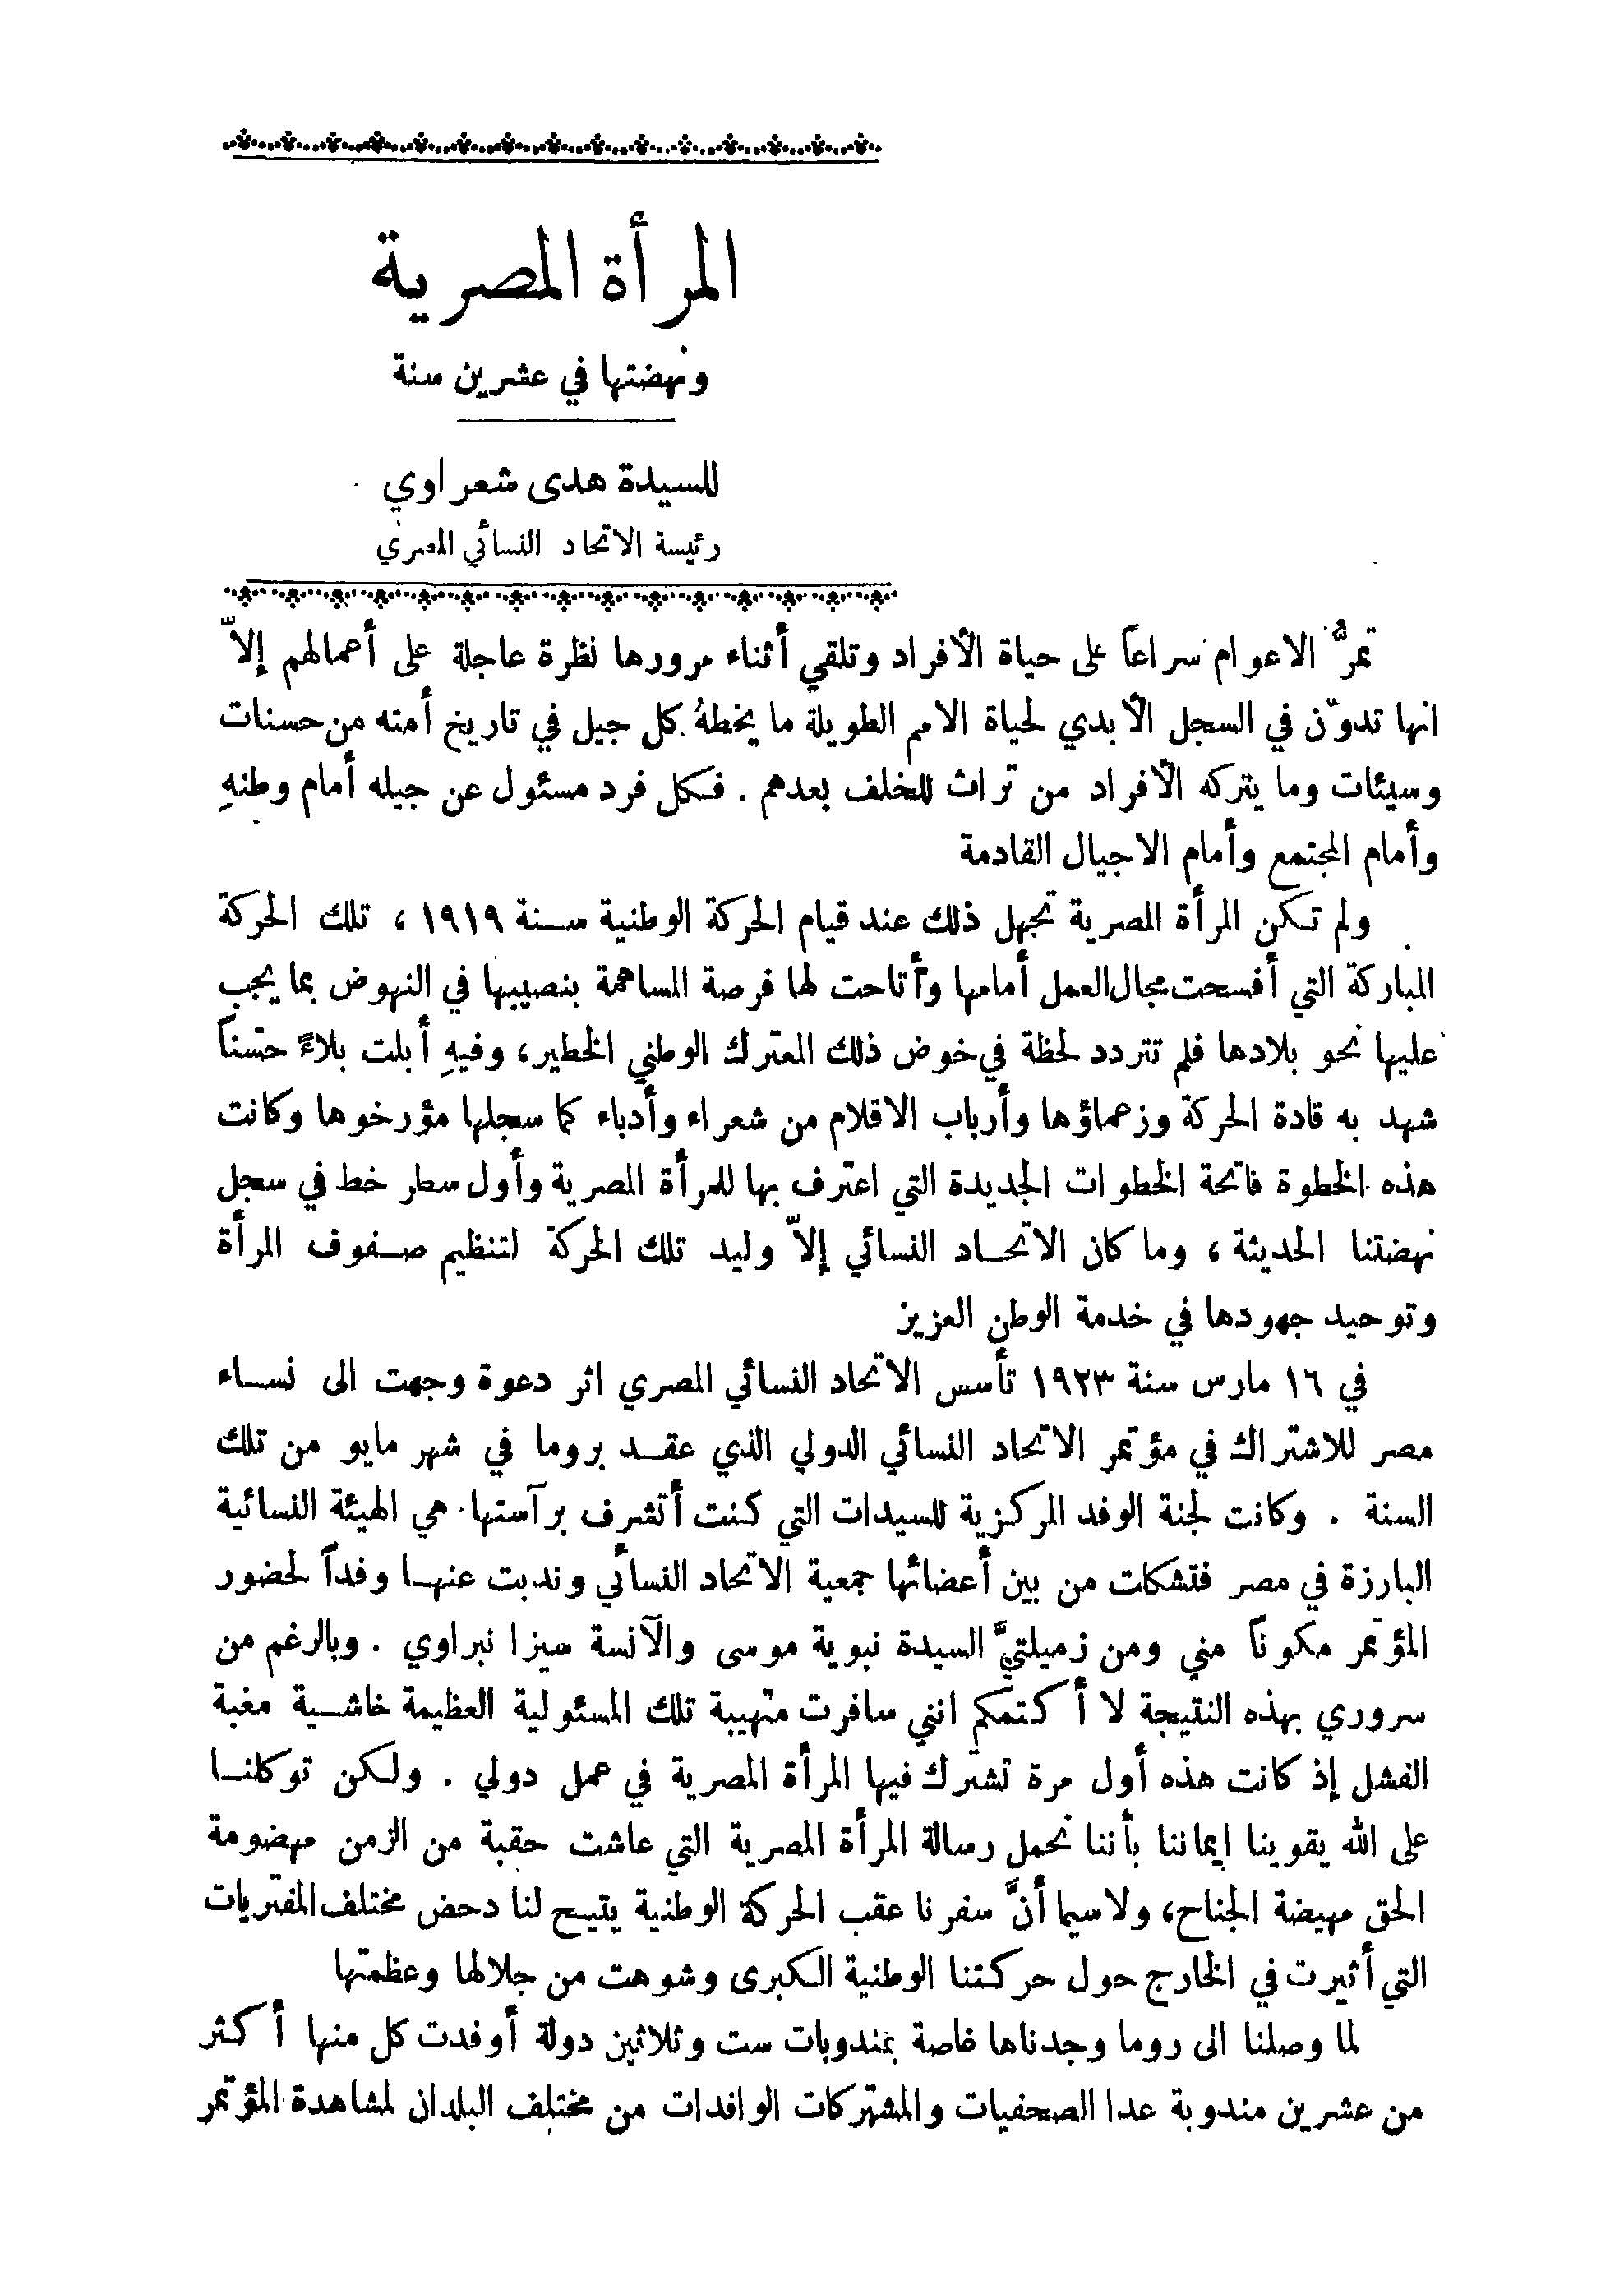 المرأة المصرية
ونهضتها في عشرين سنة
للسيدة هدى شعراوي
رئيسة الاتحاد النسائي المصري
تمرُّ الاعوام سراعاً على حياة الأفراد وتلقي أثناء مرورها نظرة عاجلة على أعمالهم إلاّ
انها تدوّن في السجل الأبدي لحياة الامم الطويلة ما يخطهُ كل جيل في تاريخ أمته من حسنات
وسيئات وما يتركه الأفراد من تراث للخلف بعدهم . فكل فرد مسئول عن جيله أمام وطنهِ
وأمام المجتمع وأمام الاجيال القادمة
ولم تكن المرأة المصرية تجهل ذلك عند قيام الحركة الوطنية سنة ١٩١٩ ، تلك الحركة
المباركة التي أفسحت مجال العمل أمامها وأتاحت لها فرصة المساهمة بنصيبها في النهوض بما يجب
عليها نحو بلادها فلم تتردد لحظة في خوض ذلك المعترك الوطني الخطير، وفيهِ أبلت بلاءً حسناً
شهد به قادة الحركة وزعماؤها وأرباب الاقلام من شعراء وأدباء كما سجلها مؤرخوها وكانت
هذه الخطوة فاتحة الخطوات الجديدة التي اعترف بها للمرأة المصرية وأول سطر خط في سجل
نهضتنا الحديثة ، وما كان الاتحاد النسائي إلاّ وليد تلك الحركة لتنظيم صفوف المرأة
وتوحيد جهودها في خدمة الوطن العزيز
في ١٦ مارس سنة ١٩٢٣ تأسس الاتحاد النسائي المصري اثر دعوة وجهت الى نساء
مصر للاشتراك في مؤتمر الاتحاد النسائي الدولي الذي عقد بروما في شهر مايو من تلك
السنة . وكانت لجنة الوفد المركزية للسيدات التي كنت أتشرف برآستها هي الهيئة النسائية
البارزة في مصر فتشكلت من بين أعضائها جمعية الاتحاد النسائي وندبت عنها وفداً لحضور
المؤتمر مكوناً مني ومن زميلتيَّ السيدة نبوية موسى والآنسة سيزا نبراوي . وبالرغم من
سروري بهذه النتيجة لا أكتمكم انني سافرت متهيبة تلك المسئولية العظيمة خاشية مغبة
الفشل إذ كانت هذه أول مرة تشترك فيها المرأة المصرية في عمل دولي . ولكن توكلنا
على الله يقوينا إيماننا بأننا نحمل رسالة المرأة المصرية التي عاشت حقبة من الزمن مهضومة
الحق مهيضة الجناح، ولا سيما أنَّ سفرنا عقب الحركة الوطنية يتيح لنا دحض مختلف المفتريات
التي أثيرت في الخارج حول حركتنا الوطنية الكبرى وشوهت من جلالها وعظمتها
لما وصلنا الى روما وجدناها غاصة بمندوبات ست وثلاثين دولة أوفدت كل منها أكثر
من عشرين مندوبة عدا الصحفيات والمشتركات الوافدات من مختلف البلدان لمشاهدة المؤتمر